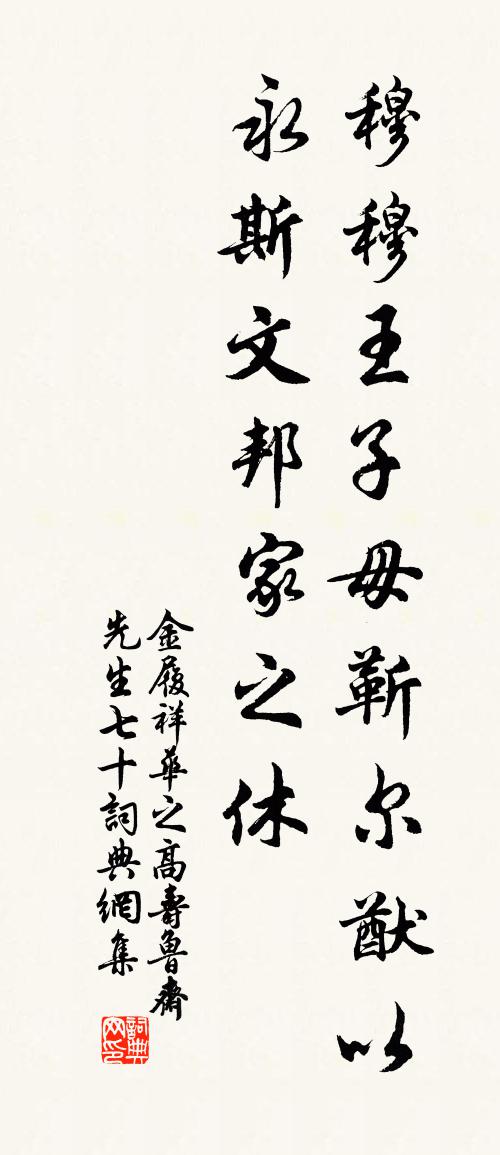 穆穆王子毋靳尔猷以
永斯文邦家之休
金履祥華之高壽魯齋
先生七十詞典網集
詞典网印